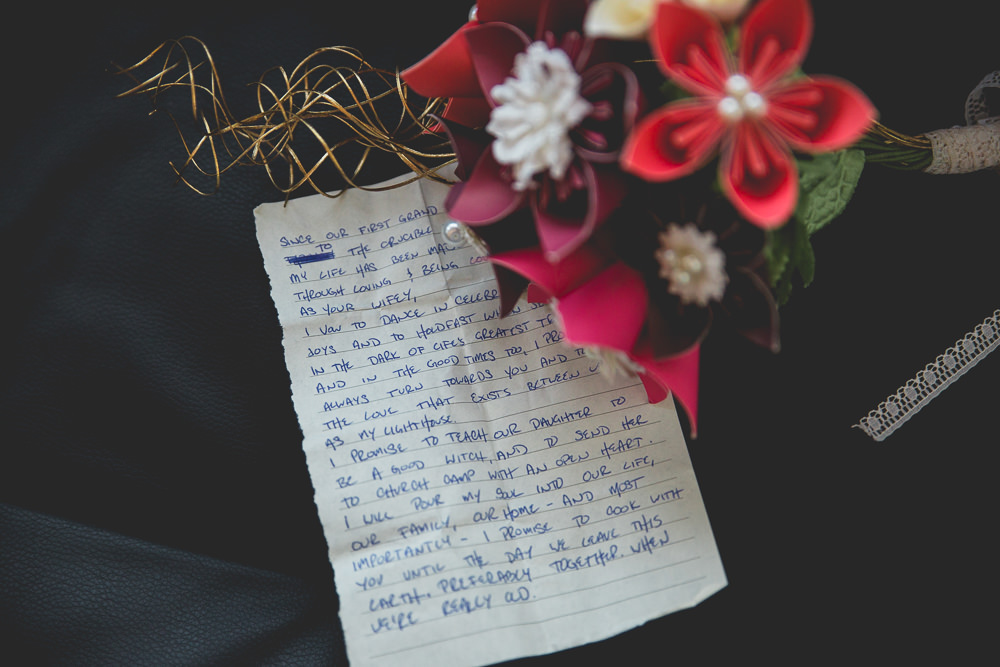 SINCE OUR FIRST GRAND
TO THE CRUCIBLE
MY LIFE HAS BEEN
THROUGH LOVING & BEING
AS YOUR WIFEY,
I VOW TO DANCE IN
JOYS AND TO HOLDFAST
IN THE DARK OF LIFE'S GREATEST
AND IN THE GOOD TIMES TOO, I
ALWAYS TURN TOWARDS YOU AND
THE LOVE THAT EXISTS BETWEEN
AS MY LIGHTHOUSE.
I PROMISE TO TEACH OUR DAUGHTER TO
BE A GOOD WITCH, AND TO SEND HER
TO CHURCH CAMP WITH AN OPEN HEART.
I WILL POUR MY SOUL INTO OUR LIFE,
OUR FAMILY, OUR HOME - AND MOST
IMPORTANTLY - I PROMISE TO COOK WITH
YOU UNTIL THE DAY WE LEAVE THIS
EARTH. PREFERABLY TOGETHER. WHEN
WE'RE REALLY OLD.